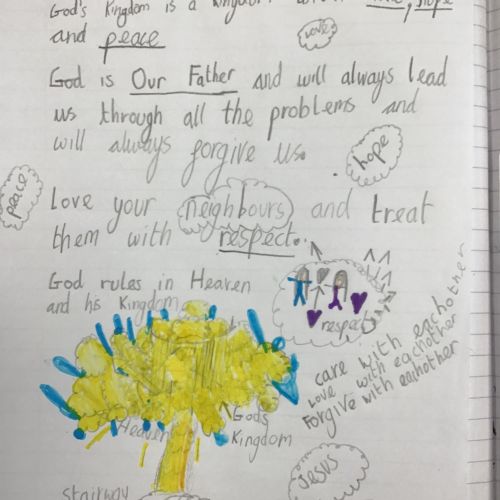 God's Kingdom is a
and peace
love
God is Our Father and will always lead
us through all the problems and
will always forgive us.
hope
peace
Love your neighbours and treat
them with respect.
God rules in Heaven
and his kingdom
respect
care with eachother
Love with eachother
Forgive with eachother
Heaven
Gods
Kingdom
Jesus
stairway